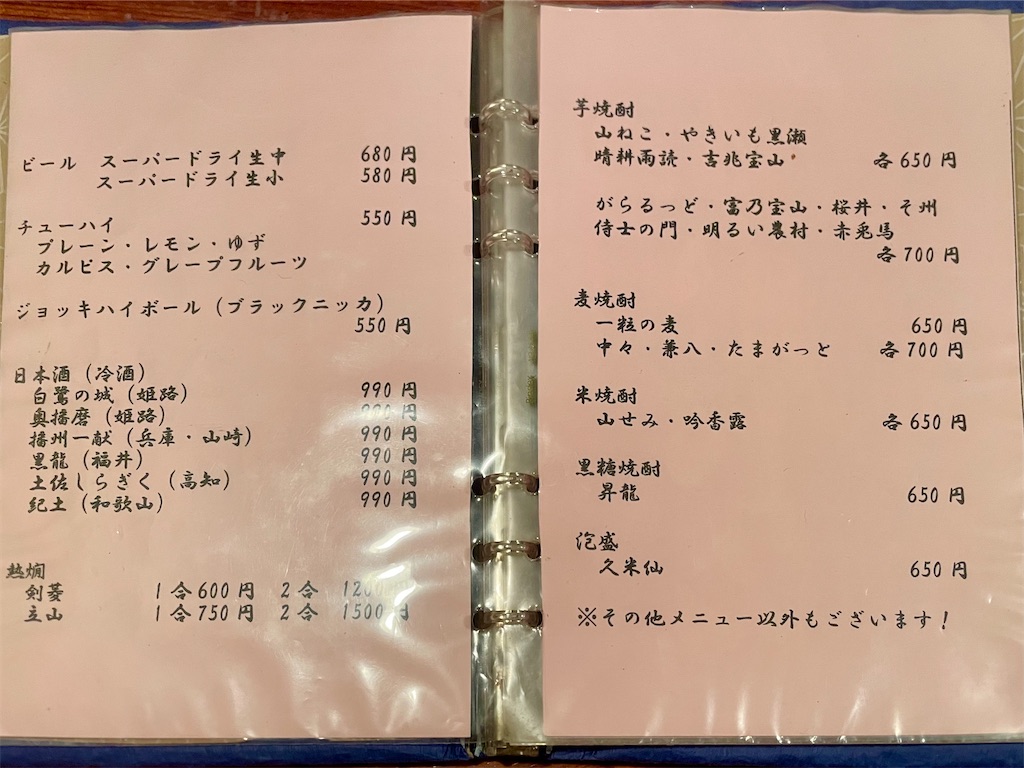 ビール スーパードライ生中 680円
スーパードライ生小 580円
チューハイ 550円
プレーン・レモン・ゆず
カルピス・グレープフルーツ
ジョッキハイボール（ブラックニッカ）
550円
日本酒（冷酒）
白鷺の城（姫路） 990円
奥播磨（姫路） 990円
播州一献（兵庫・山崎） 990円
黒龍（福井） 990円
土佐しらぎく（高知） 990円
紀土（和歌山） 990円
熱燗
剣菱 1合600円 2合 1200円
立山 1合750円 2合 1500円
芋焼酎
山ねこ・やきいも黒瀬
晴耕雨読・吉兆宝山 各650円
がらるっど・富乃宝山・桜井・そ州
侍士の門・明るい農村・赤兎馬
各700円
麦焼酎
一粒の麦 650円
中々・兼八・たまがっと 各700円
米焼酎
山せみ・吟香露 各650円
黒糖焼酎
昇龍 650円
泡盛
久米仙 650円
※その他メニュー以外もございます！